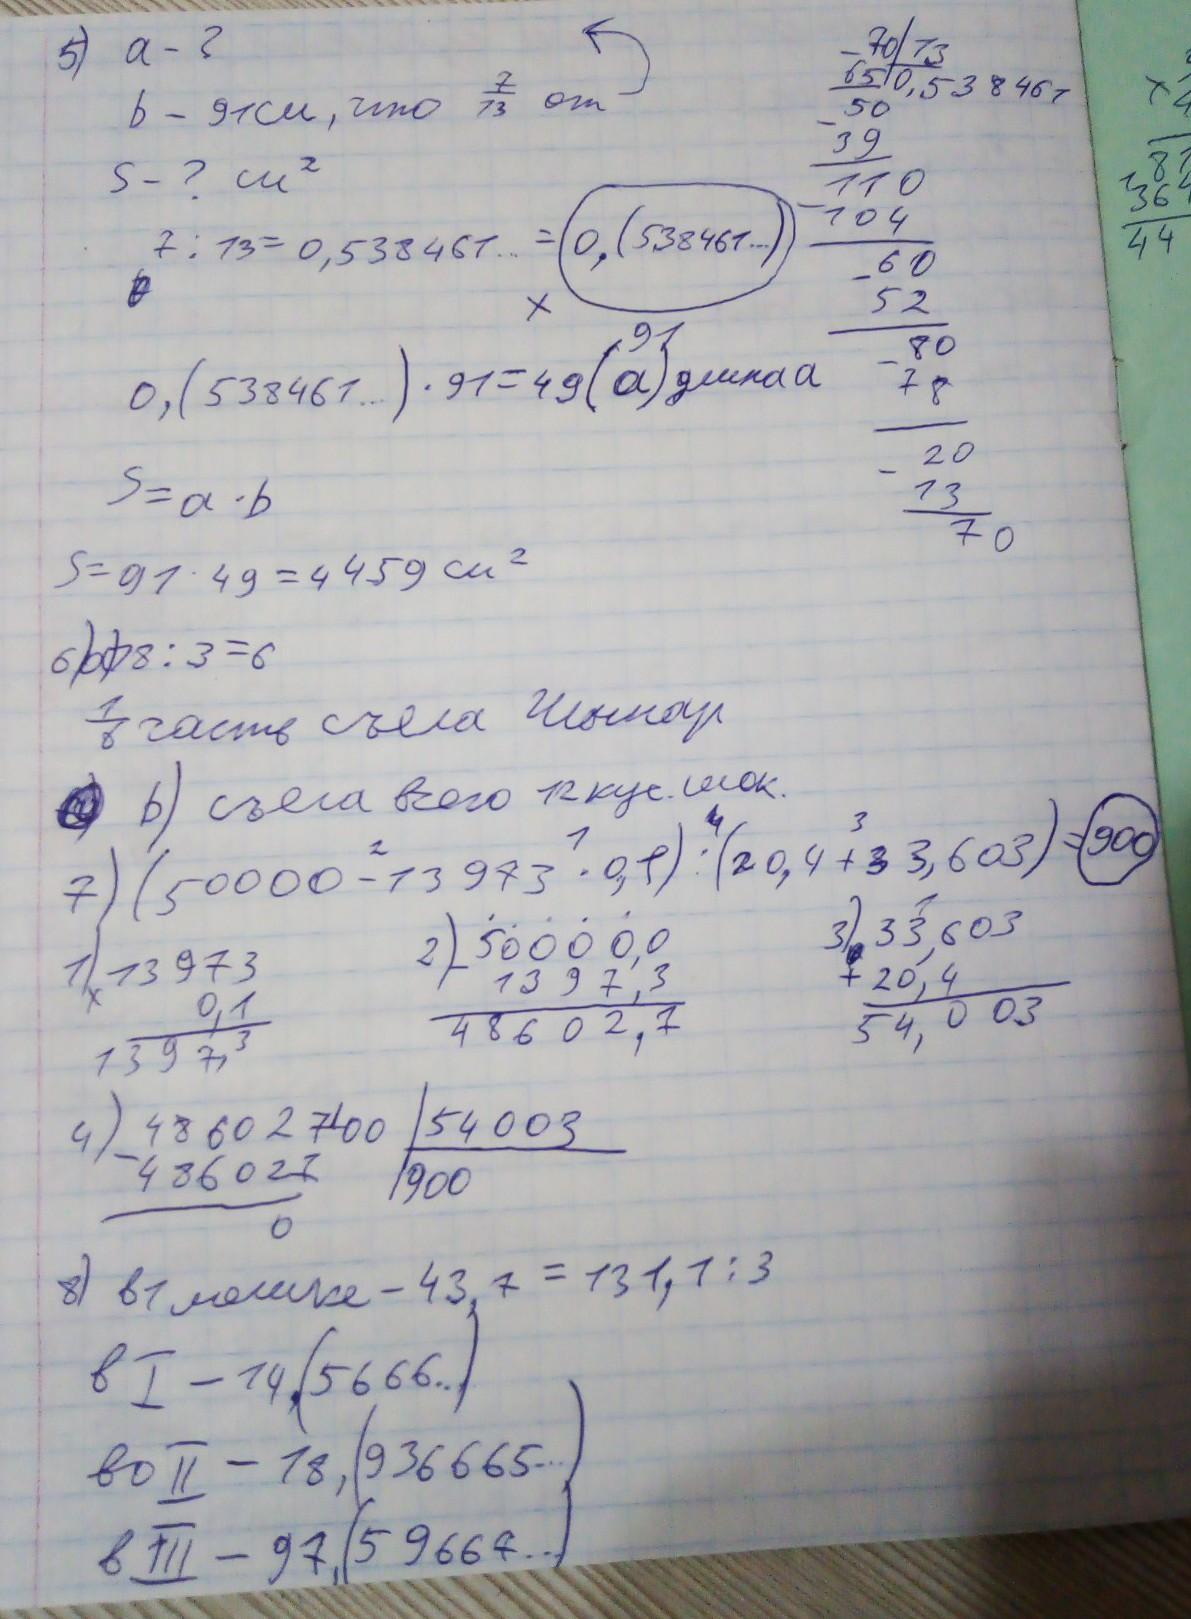 5) a - ?
b - 91 см, что 7/13 от
S - ? см²
7 : 13 = 0,538461... = 0,(538461...)
×
91
0,(538461...) · 91 = 49 (a) длина a
S = a · b
S = 91 · 49 = 4459 см²
-70 13
65 0,538461
50
- 39
110
- 104
60
- 52
80
- 78
20
- 13
70
×
4
81
364
44
6) 18 : 3 = 6
1/8 часть съела Шынар
b) съела всего 12 кус. шок.
2 1 4 3
7) (50000 - 13973 · 0,1) : (20,4 + 33,603) = 900
1) 13973
× 0,1
1397,3
2) 50000,0
- 1397,3
48602,7
3) 33,603
+ 20,4
54,003
4) 48602700 54003
- 486027 900
0
8) в 1 мешке - 43,7 = 131,1 : 3
в I - 14,(5666...)
во II - 18,(936665...)
в III - 97,(59667...)